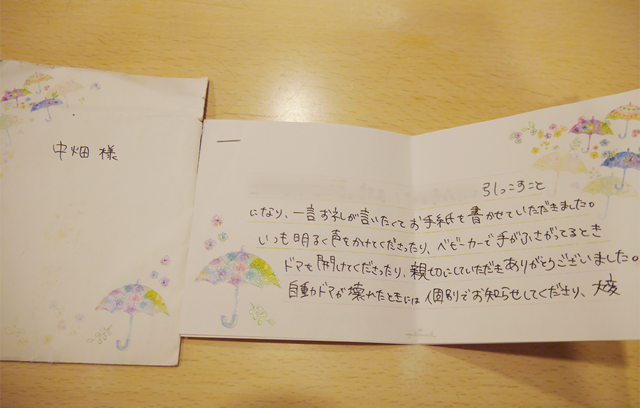 中畑 様
引っこすこと
になり、一言お礼が言いたくてお手紙を書かせていただきました。
いつも明るく声をかけてくださったり、ベビーカーで手がふさがってるとき
ドアも開けてくださったり、親切にしていただきありがとうございました。
自動ドアが壊れたときには個別でお知らせしてくださり、大変